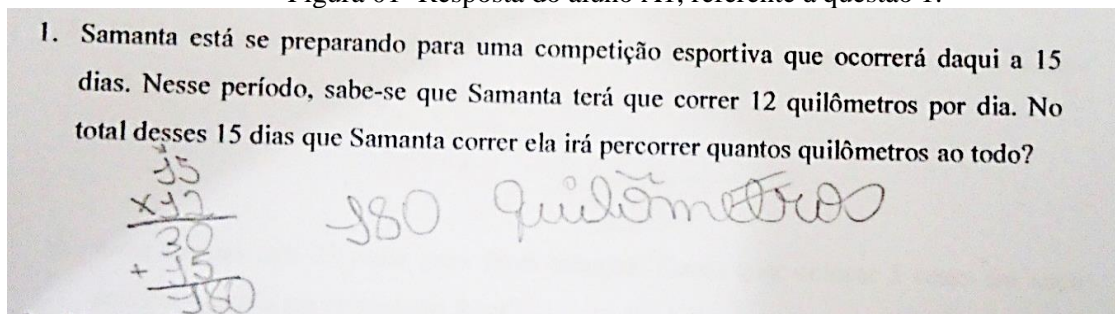 Figura 01- Resposta do aluno A1, referente a questão 1.
1. Samanta está se preparando para uma competição esportiva que ocorrerá daqui a 15
dias. Nesse período, sabe-se que Samanta terá que correr 12 quilômetros por dia. No
total desses 15 dias que Samanta correr ela irá percorrer quantos quilômetros ao todo?
15
x12
30
+ 15
180
180 quilômetros